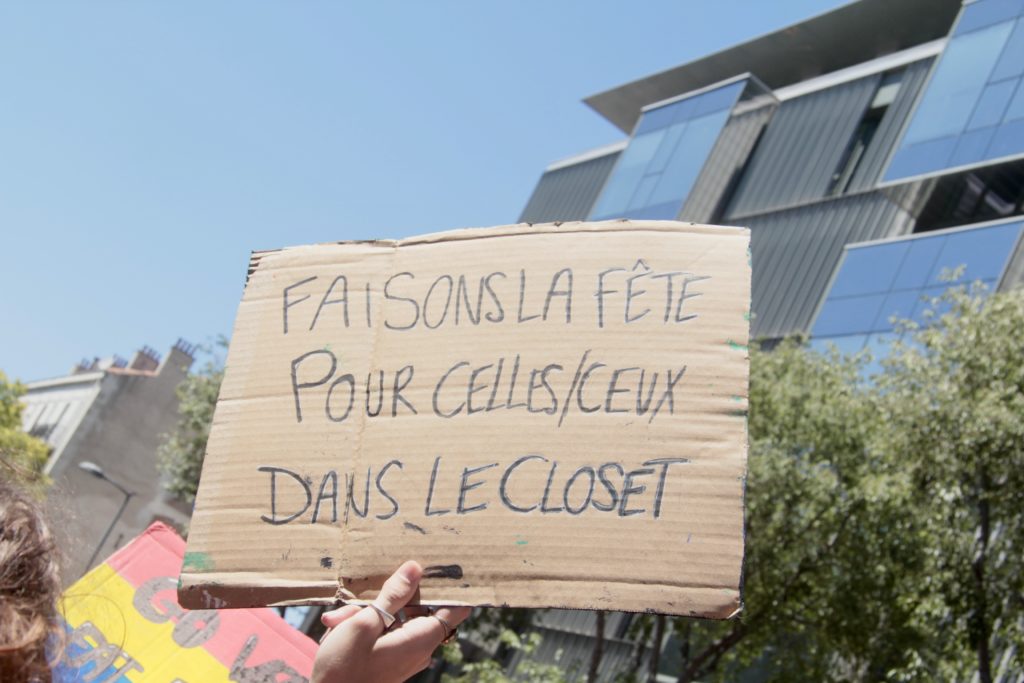 FAISONS LA FÊTE
POUR CELLES/CEUX
DANS LE CLOSET
GO